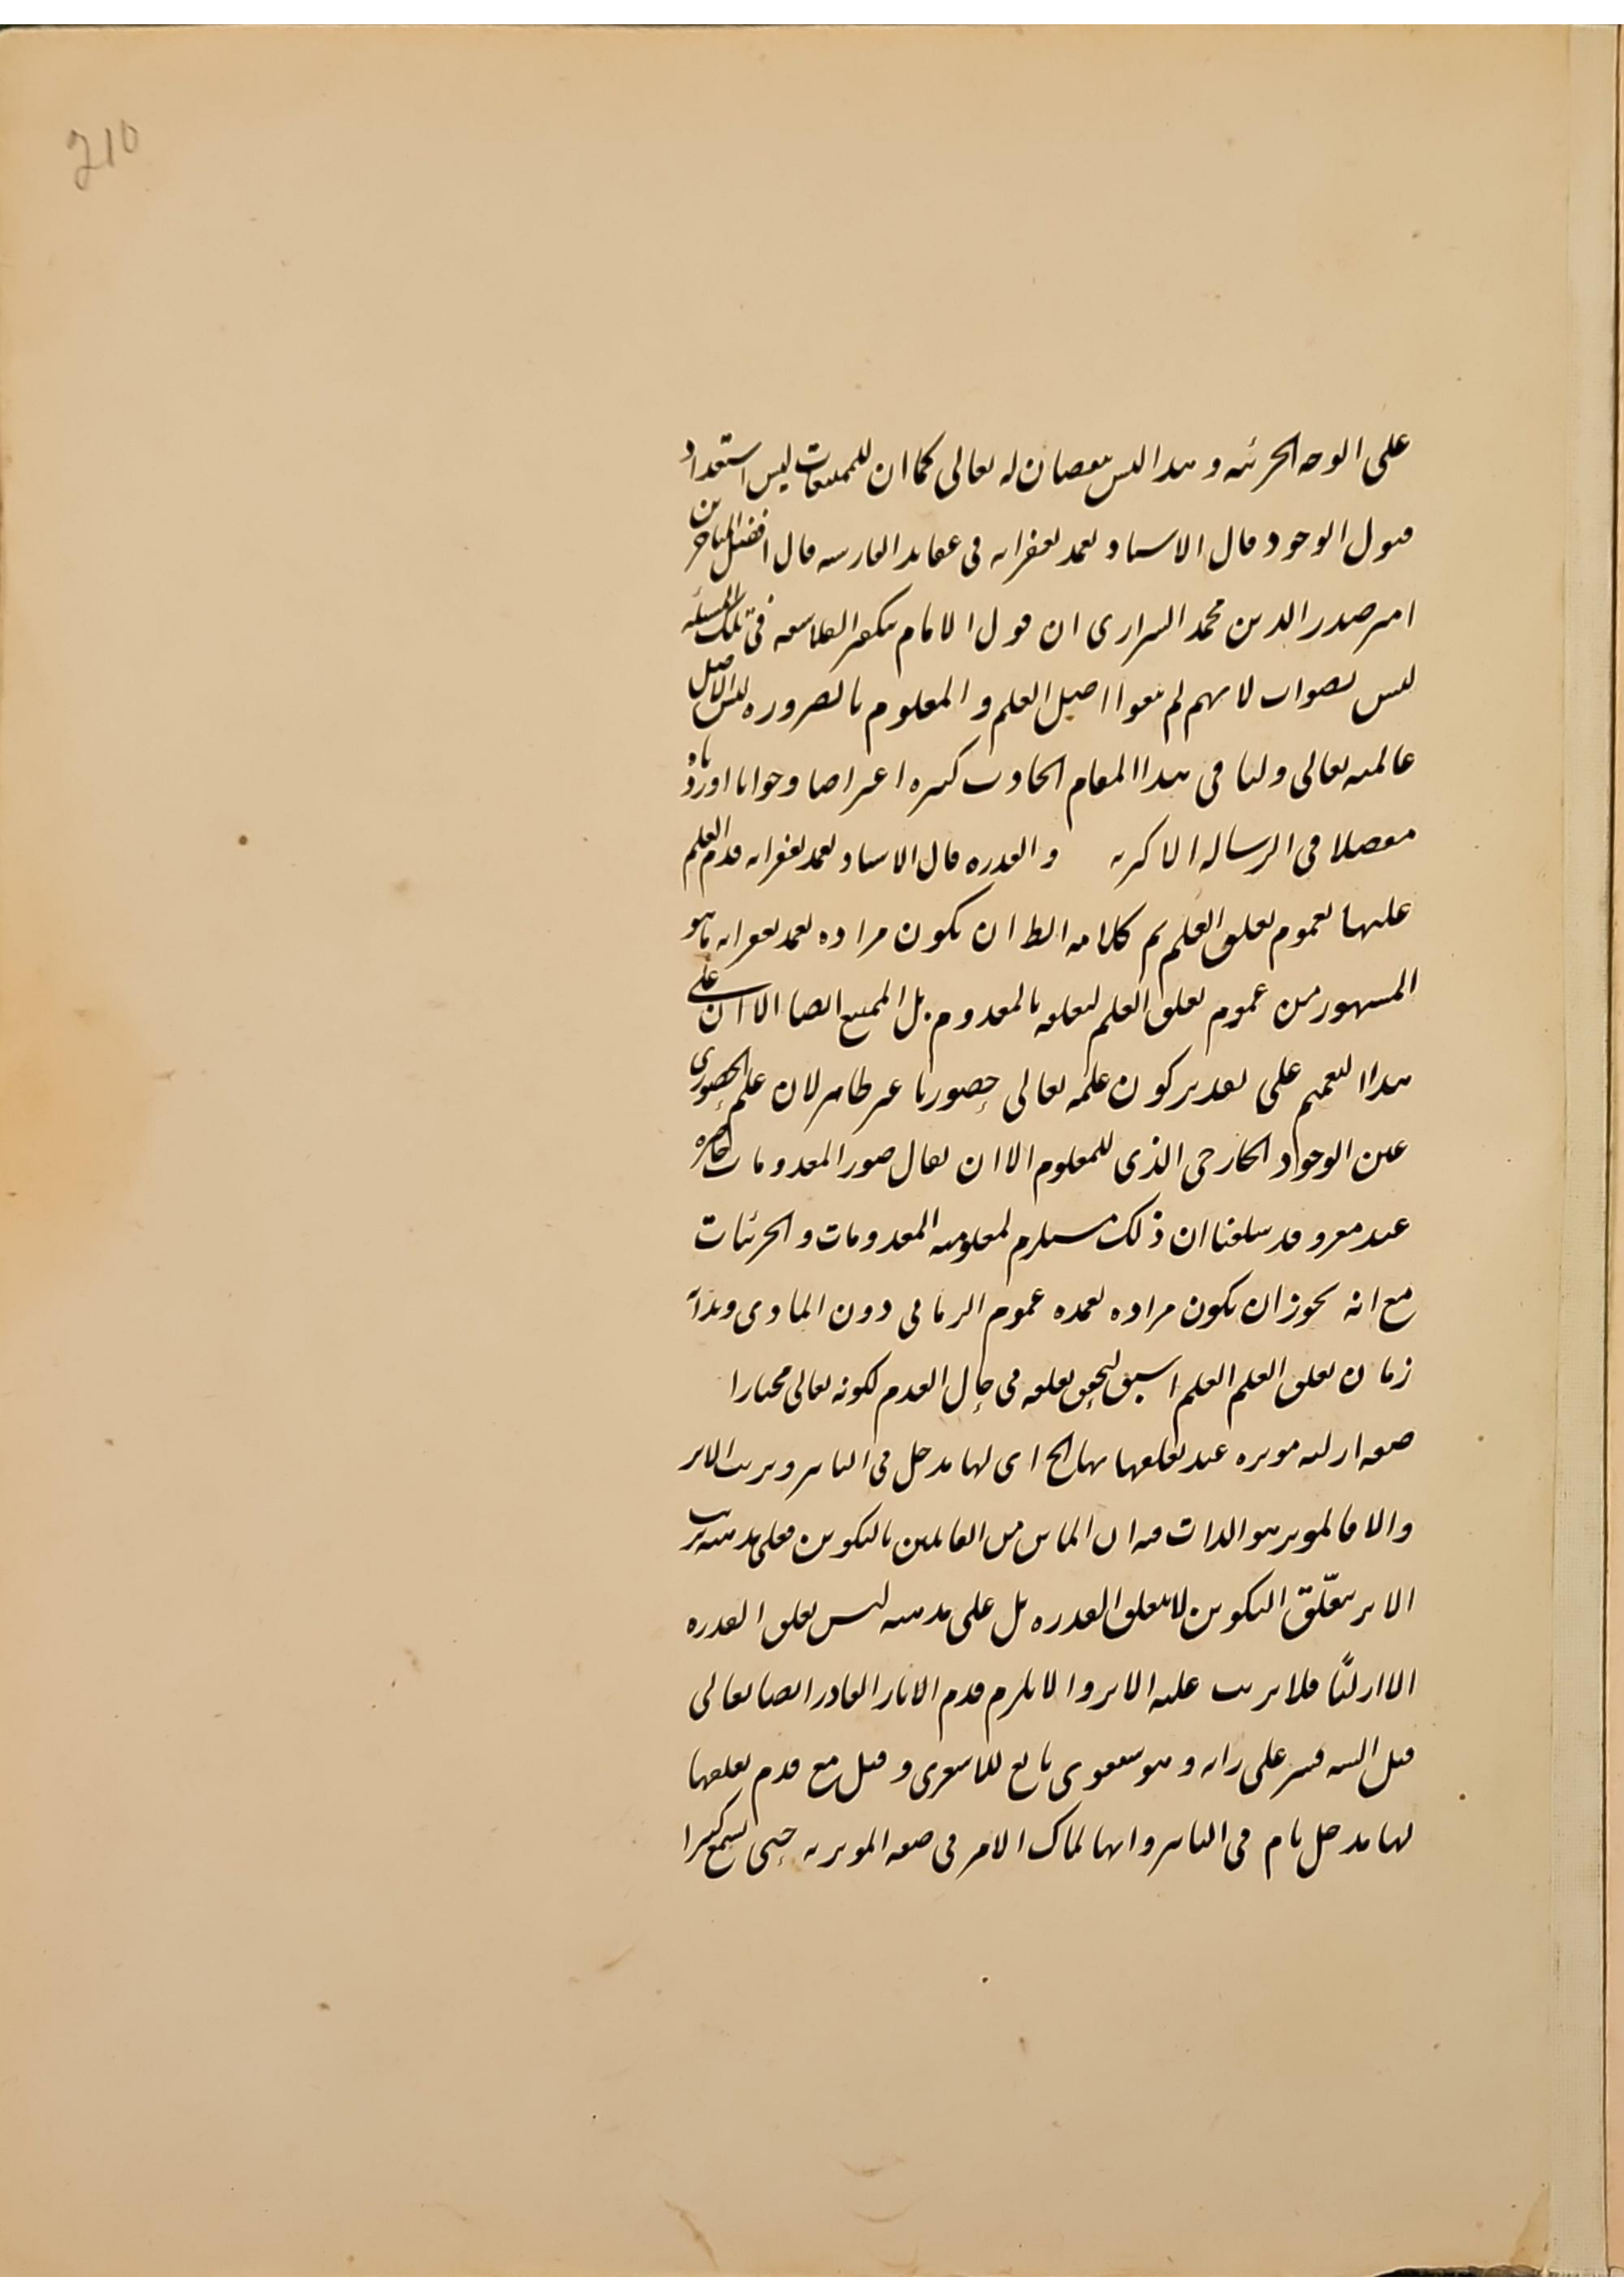 210
على الوجه الجزئية وهذا ليس بنقصان له تعالى كما ان للممتنعات ليس استعداد
قبول الوجود قال الاستاد تغمد بغفرانه فى عقايد الفارسيه قال افضل المتاخرين
امير صدر الدين محمد الشيرازى ان قول الامام بتكفير الفلاسفه فى تلك المسئله
ليس بصواب لانهم لم ينفوا اصل العلم و المعلوم بالضروره ليس الا اصل
عالميته تعالى ولنا فى هذا المقام ابحاث كثيره اعتراضا وجوابا اوردناه
مفصلا فى الرساله الاكبريه والقدره قال الاستاد تغمد بغفرانه قدم العلم
عليها لعموم تعلق العلم ثم كلامه الظ ان يكون مراده تغمد بغفرانه ما هو
المشهور من عموم تعلق العلم لتعلقه بالمعدوم بل الممتنع ايضا الا ان على
هذا التعميم على تقدير كون علمه تعالى حضوريا غير ظاهر لان علم الحضورى
عين الوجود الخارجى الذى للمعلوم الا ان يقال صور المعدومات حاضره
عند وقد سلفنا ان ذلك مستلزم لمعلوميه المعدومات والجزئيات
مع انه يجوز ان يكون مراده تغمده عموم الزمانى دون المادى وبدأ
زمان تعلق العلم العلم اسبق لتحقق تعلقه فى حال العدم لكونه تعالى مختارا
صفه ازليه موثره عند تعلقها بها الخ اى لها مدخل فى التاثير وترتب الاثر
والا فالموثر هو الذات فيه ان الماتن من القايلين بالتكوين فعلى مذهبه ترتب
الاثر بتعلّق التكوين لا بتعلق القدره بل على مذهبه ليس تعلق القدره
الا ازليًّا فلا يترتب عليه الاثر والا يلزم قدم الاثار القادر ايضا تعالى
قيل فسر على رايه و هو تابع للاشعرى و قيل مع قدم تعلقها
لها مدخل تام فى التاثير وانها لماك الامر فى صفه الموثريه حتى يسمع كثيرا